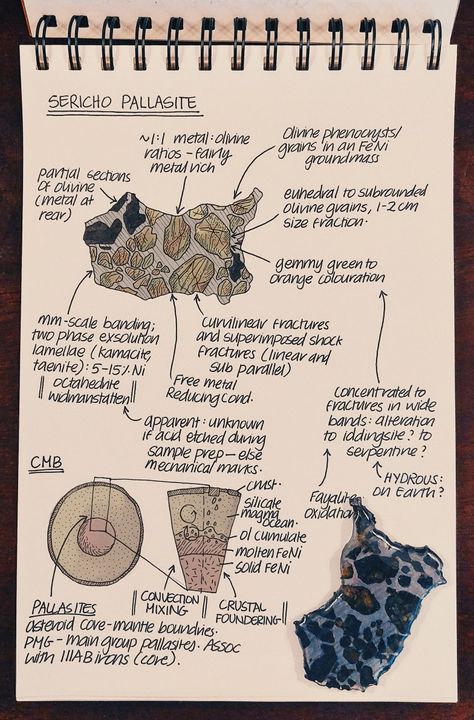 SERICHO PALLASITE
~1:1 metal:olivine
ratios - fairly
metal rich
Olivine phenocrysts/
grains in an FeNi
groundmass
partial sections
of olivine
(metal at
rear)
euhedral to subrounded
olivine grains, 1-2cm
size fraction.
gemmy green to
orange colouration
mm-scale banding;
two phase exsolution
lamellae (kamacite,
taenite): 5-15% Ni
|| octahedrite ||
|| widmanstatten ||
Free metal
Reducing cond.
curvilinear fractures
and superimposed shock
fractures (linear and
sub parallel)
apparent: unknown
if acid etched during
sample prep - else
mechanical marks.
concentrated to
fractures in wide
bands: alteration
to iddingsite? to
serpentine?
HYDROUS:
on Earth?
Fayalite
oxidation
CMB
crust.
silicate
magma
ocean.
ol cumulate
molten FeNi
solid FeNi
|| CONVECTION ||
|| MIXING ||
|| CRUSTAL ||
|| FOUNDERING ||
PALLASITES
asteroid core-mantle boundries.
PMG - main group pallasites. Assoc
with IIIAB irons (core).